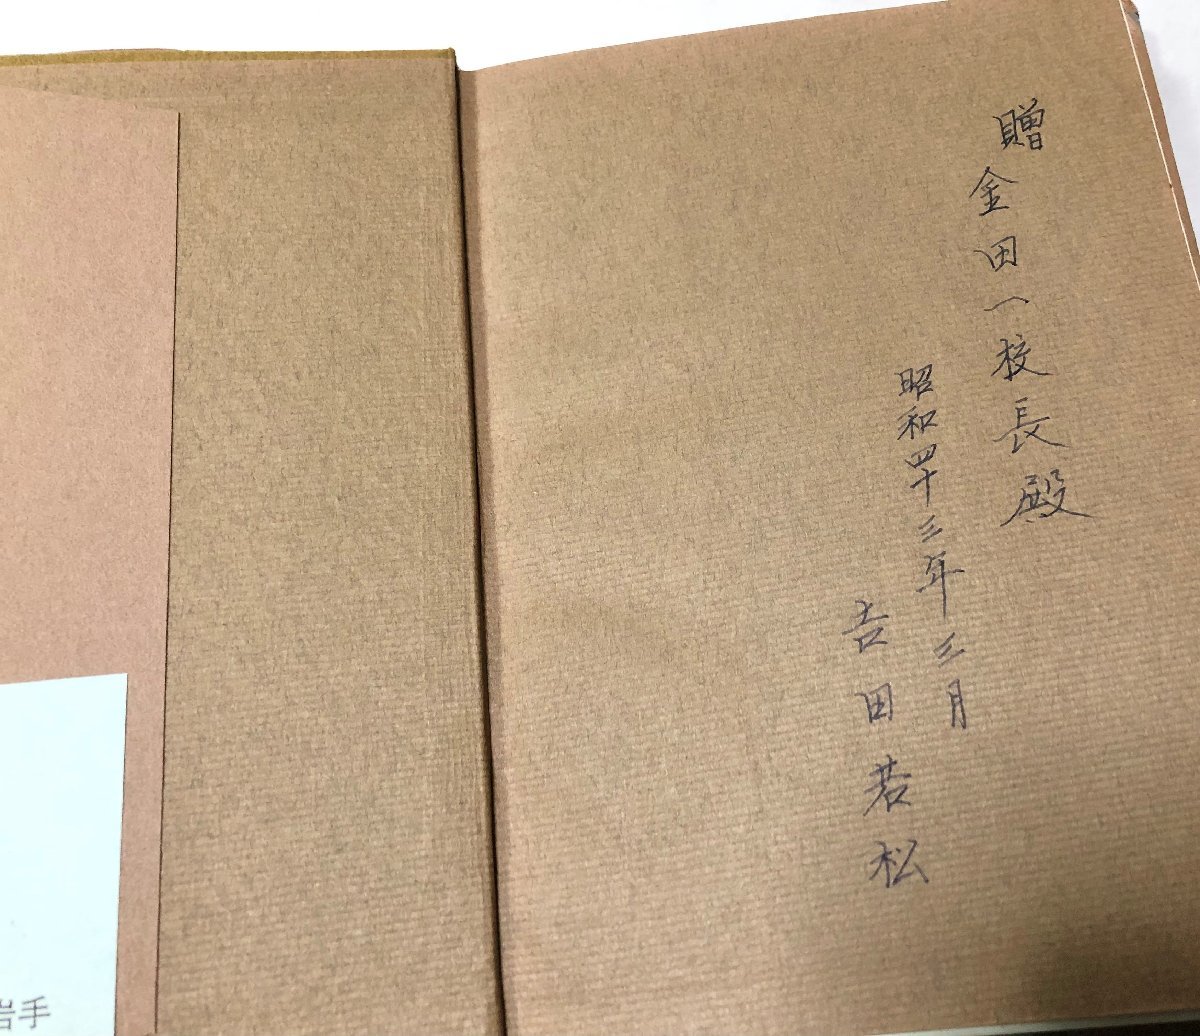 贈金田一校長殿
昭和四十三年三月
吉田若松
岩手